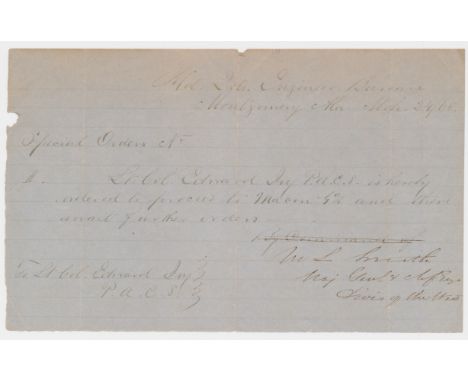 Hd. Qrs. Engineer Bureau
Montgomery Ala Mch
Special Orders No
II. Lt Col. Edward Ivy P.A.C.S. is hereby
ordered to proceed to Macon Ga and there
await further orders.
By Command of
M L Smith
Maj Genl & Chf Engr
Divis of the West
To Lt Col. Edward Ivy
P. A. C. S.